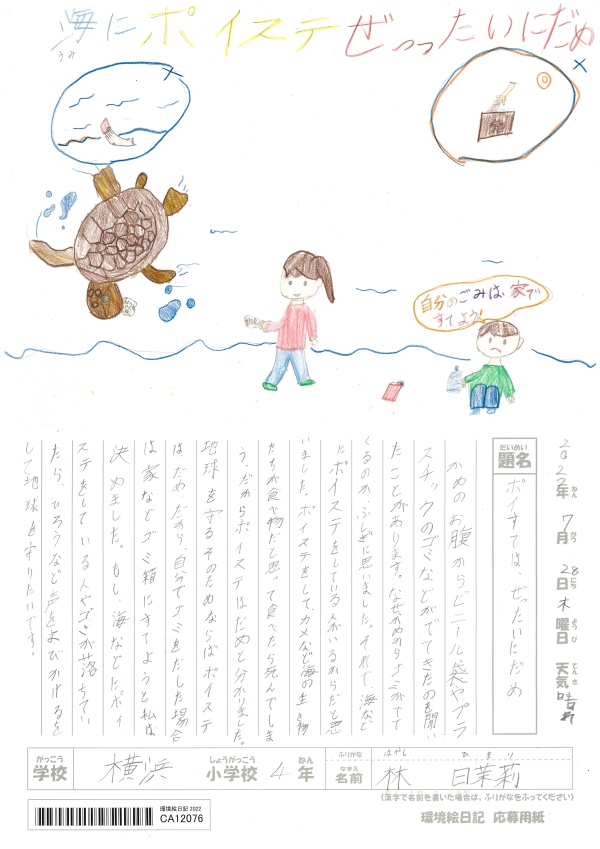 海にポイステぜっったいにだめ
うみ
自分のごみは家で
すてよう
2022年 7月 28日 木曜日 天気晴れ
ねん がつ にち ようび てんき
だいめい
題名
ポイすては、ぜったいにだめ
かめのお腹からビニール袋やプラ
スチックのゴミなどがでてきたのを聞い
たことがあります。なぜかめからゴミがでて
くるのか、ふしぎに思いました。それで、海など
にポイステをしている人がいるからだと思
いました。ポイステをして、カメなど海の生き物
たちが食べ物だと思って食べたら死んでしま
う。だからポイステはだめと分かりました。
地球を守るそのためならばポイステ
はだめだから、自分でゴミをだした場合
は家などゴミ箱にすてようと私は
決めました。もし、海などにポイ
ステをしている人やゴミが落ちてい
たら、ひろうなど声をよびかけるを
して地球を守りたいです。
がっこう しょうがっこう ねん ふりがな はやし ひまり
学校 横浜 小学校 4年 名前 林 日茉莉
なまえ
(漢字で名前を書いた場合は、ふりがなをふってください)
環境絵日記 2022
CA12076
環境絵日記 応募用紙